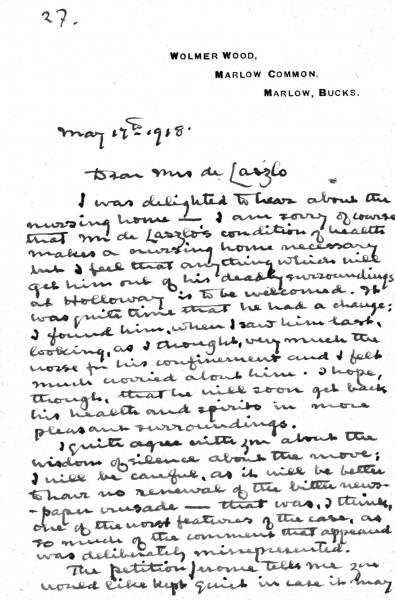 27.
WOLMER WOOD,
MARLOW COMMON,
MARLOW, BUCKS.
May 17th 1918.
Dear Mrs de Laszlo
I was delighted to hear about the
nursing home — I am sorry of course
that Mr de Laszlo's condition of health
makes a nursing home necessary
but I feel that anything which will
get him out of his deadly surroundings
at Holloway is to be welcomed. It
was quite time that he had a change;
I found him, when I saw him last,
looking, as I thought, very much the
worse for his confinement and I felt
much worried about him. I hope,
though, that he will soon get back
his health and spirits in more
pleasant surroundings.
I quite agree with you about the
wisdom of silence about the move;
I will be careful, as it will be better
to have no renewal of the bitter news-
-paper crusade — that was, I think,
one of the worst features of the case, as
so much of the comment that appeared
was deliberately misrepresented.
The petition Jerome tells me you
would like kept quiet in case it may